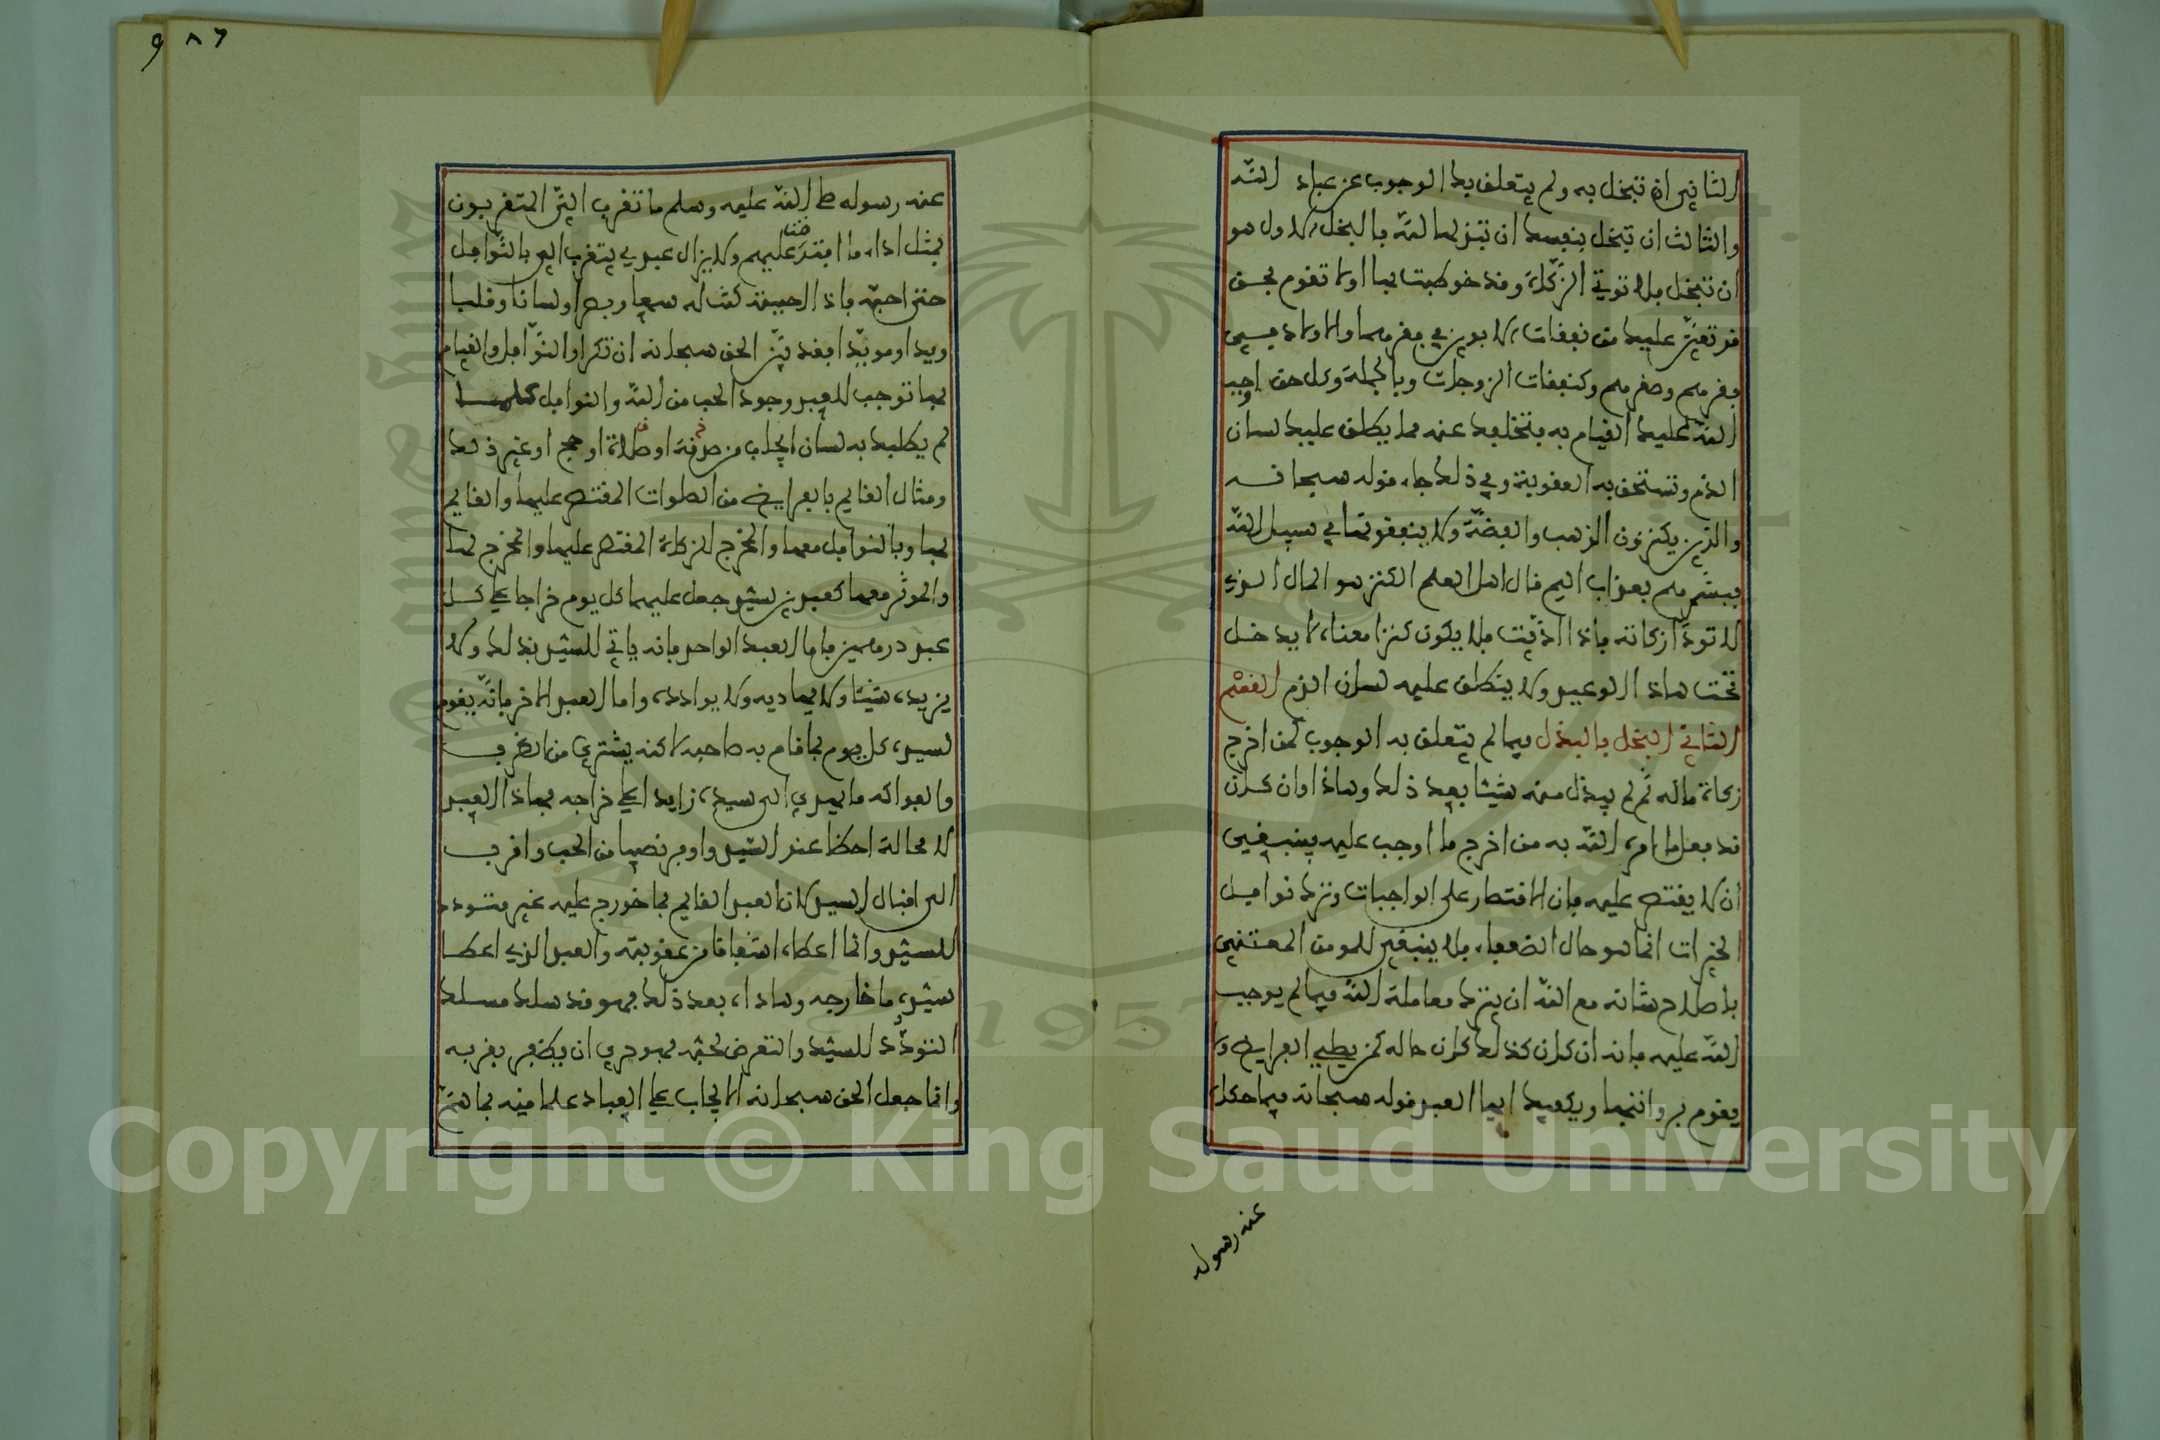 الثاني ان تبخل به ولم يتعلق بك الوجوب عن عباد الله
والثالث ان تبخل بنفسك ان تبذلها لله بالبخل الاول هو
ان تبخل فلا توتي الزكاة وقد خوطبت بها اولا تقوم بحق
قد تعين عليك من نفقات الابوين في فقرهما والاولاد في
فقرهم وصغرهم وكنفقات الزوجات وبالجملة وكل حق اوجب
الله عليك القيام به فتخلفك عنه مما يطلق عليك لسان
الذم وتستحق به العقوبة وفي ذلك جاء قوله سبحانه
والذين يكنزون الذهب والفضة ولا ينفقونها في سبيل الله
فبشرهم بعذاب اليم قال اهل العلم الكنز هو المال الذي
لا تودا زكاته فاذا اديت فلا يكون كنزا معناه لا يدخل
تحت هاذا الوعيد ولا ينطلق عليه لسان الذم القسم
الثاني البخل بالبذل فيما لم يتعلق به الوجوب كمن اخرج
زكاة ماله ثم لم يبذل منه شيئا بعد ذلك وهاذا وان كان
قد فعل ما امره الله به من اخرج ما اوجب عليه فينبغي
ان لا يقتصر عليه فان الاقتصار على الواجبات وترك نوافل
الخيرات انما هو حال الضعفاء فلا ينبغي للمومن المعتني
باصلاح شانه مع الله ان يترك معاملة الله فيما لم يوجب
الله عليه فانه ان كان كذلك كان حاله كمن يصلي الفرايض ولا
يقوم برواتبها ويكفيك ايها العبد قوله سبحانه فيما حكاه
عنه رسوله
٩٨٦
عنه رسوله صلى الله عليه وسلم ما تقرب الي المتقربون
بمثل اداء ما افترضت عليهم ولا يزال عبدي يتقرب الي بالنوافل
حتى احبه فاذا احببته كنت له سمعا وبصرا ولسانا وقلبا
ويدا ومويدا فقد بين الحق سبحانه ان تكرار النوافل والقيام
بها توجب للعبد وجود الحب من الله والنوافل كلما
لم يطلبك به لسان ايجاب من صدقة او صلاة او حج او غير ذلك
ومثال القايم بالفرايض من الصلوات المقتصر عليها والقايم
بها وبالنوافل معها والمخرج للزكاة المقتصر عليها والمخرج لها
والموثر معها كعبدين لسيد جعل عليهما كل يوم خراجا على كل
عبد درهمين فاما العبد الواحد فانه ياتي للسيد بذلك ولا
يزيده شيئا ولا يهاديه ولا يوادده واما العبد الاخر فانه يقوم
لسيده كل يوم بما قام به صاحبه لاكنه يشتري من الظرف
والفواكه ما يهدي الى سيده زايدا على خراجه فهاذا العبد
لا محالة احظا عند السيد واوفر نصيبا من الحب واقرب
الى اقبال السيد لان العبد القايم بما خورج عليه غير متودد
للسيد وانما اعطاه اشفاقا من عقوبته والعبد الذي اعطا
سيده ما خارجه وهاداه بعد ذلك فهو قد سلك مسلك
التودد للسيد والتعرض لحبه فهو حري ان يظفر بقربه
وانما جعل الحق سبحانه الايجاب على العباد علما منه بما هم
1957
Copyright © King Saud University